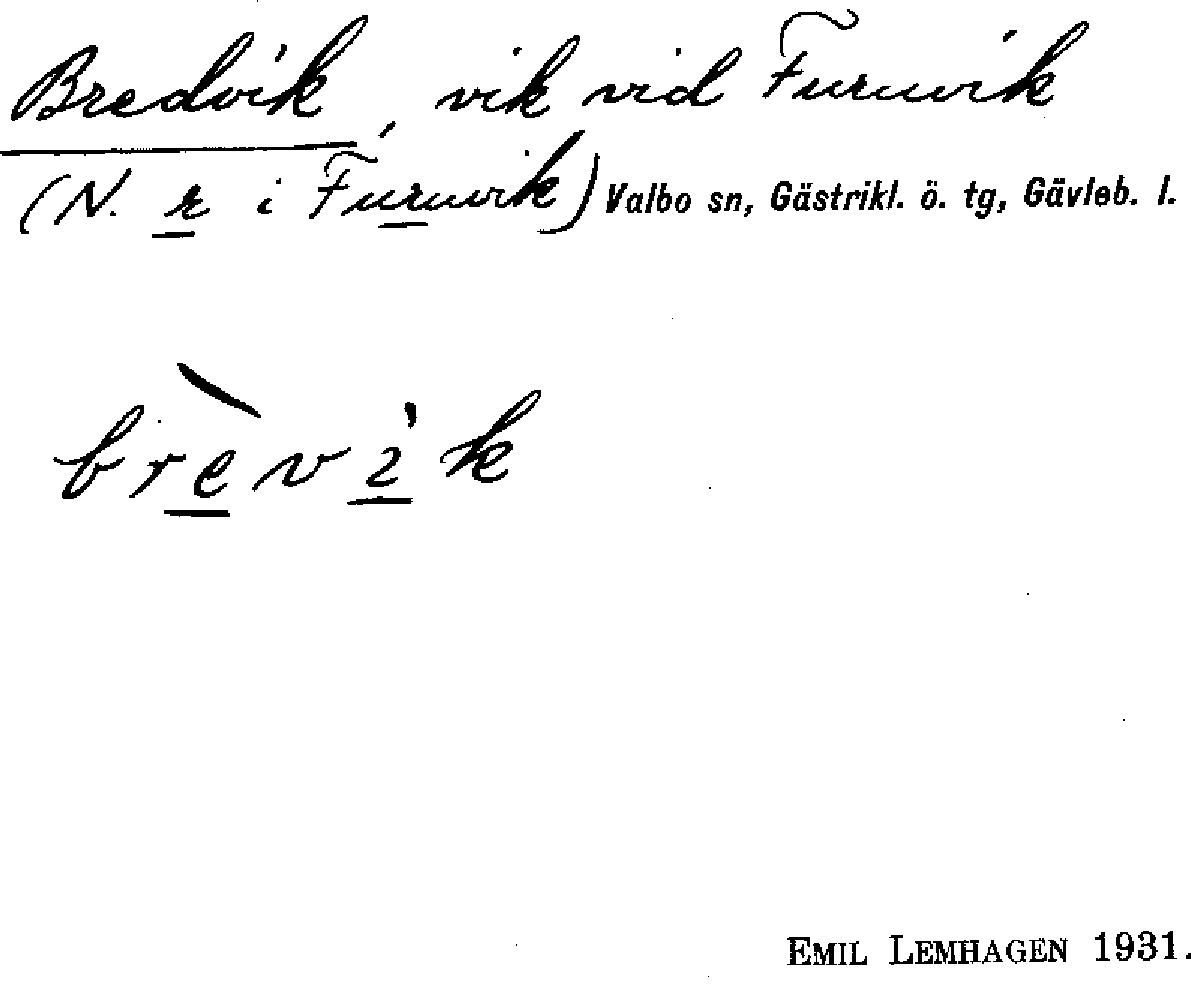 Bredvik, vik vid Furuvik
(N. r i Furuvik) Valbo sn, Gästrikl. ö. tg, Gävleb. l.
brèvik
EMIL LEMHAGEN 1931.